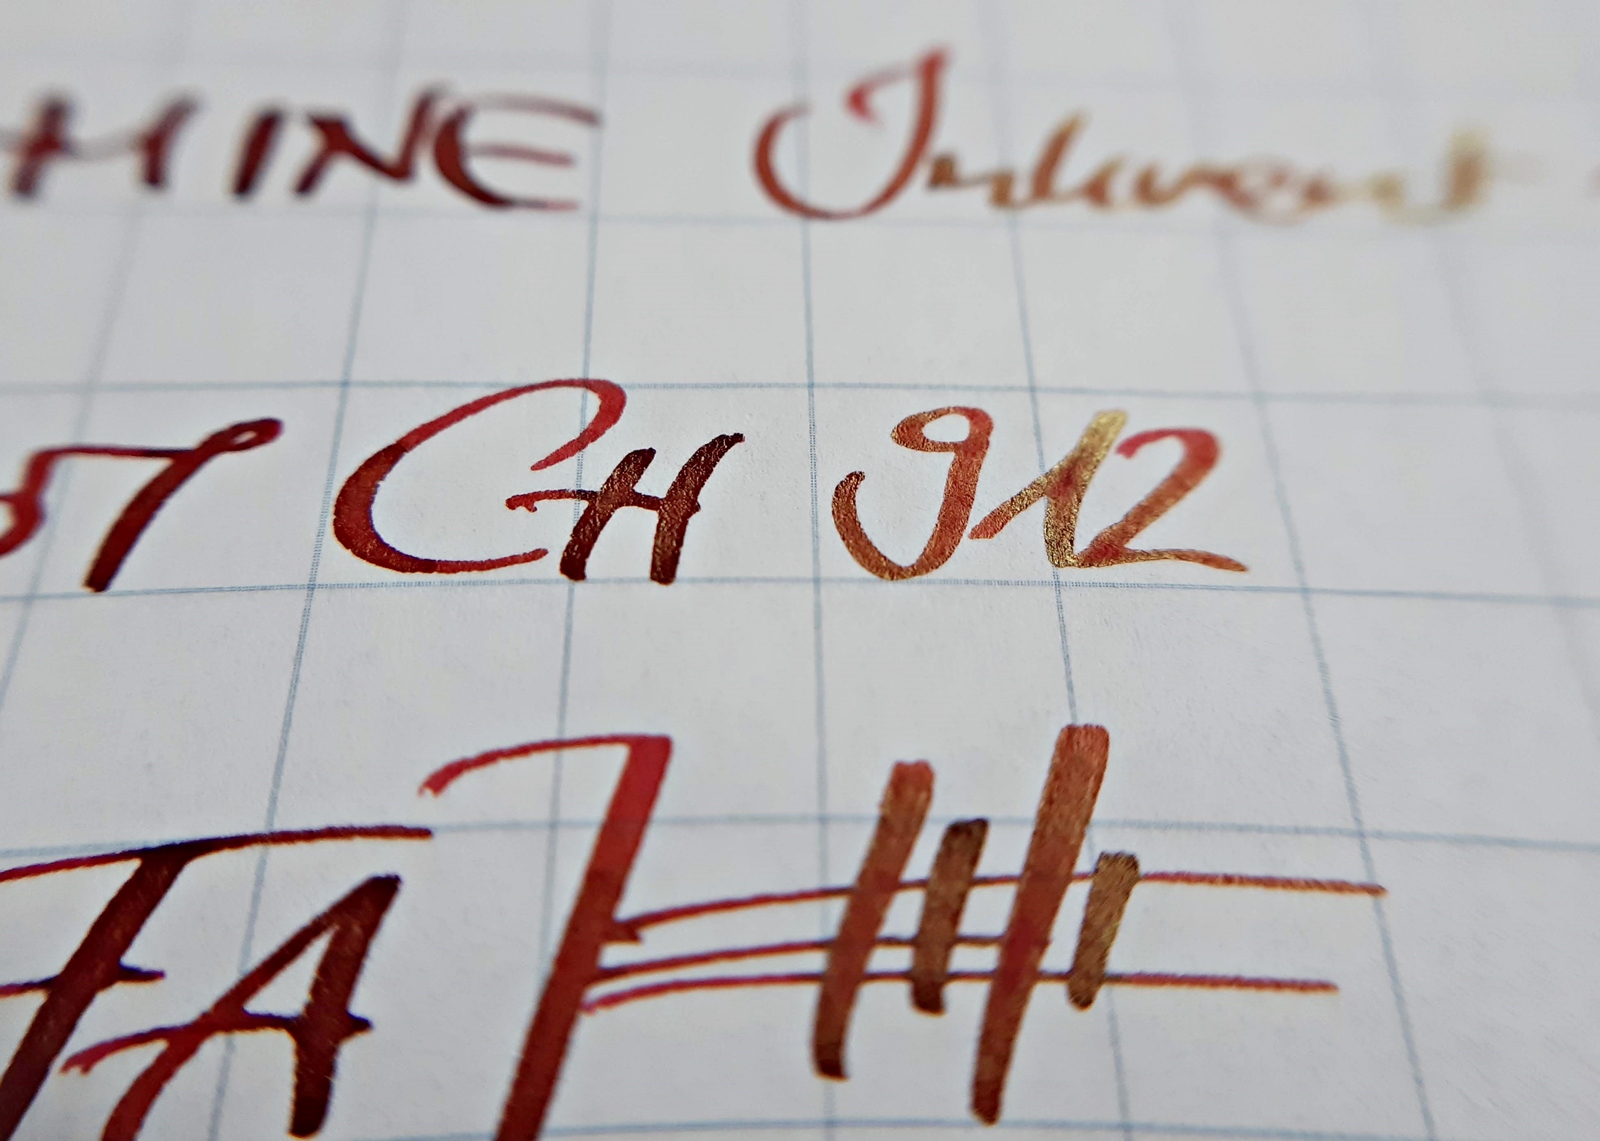 HINE Inkvent
CH 912
FA